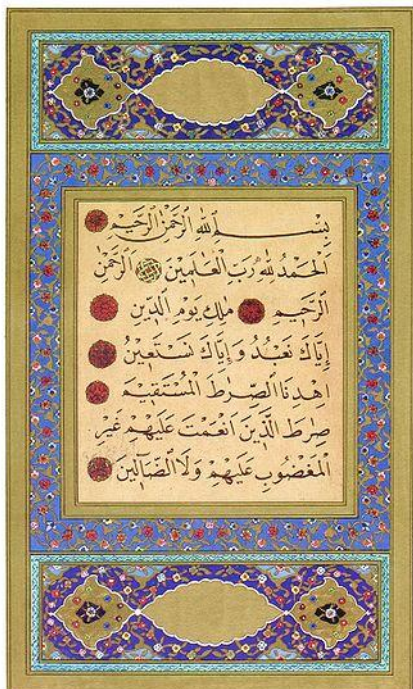 بِسْــــمِ اللهِ الرَّحْمٰنِ الرَّحِيمِ
اَلْحَمْدُ لِلّٰهِ رَبِّ الْعَالَمِينَ اَلرَّحْمٰنِ
الرَّحِيمِ مٰلِكِ يَوْمِ الدِّينِ
اِيَّاكَ نَعْبُدُ وَاِيَّاكَ نَسْتَعِينُ
اِهْدِنَا الصِّرَاطَ الْمُسْتَقِيمَ
صِرَاطَ الَّذِينَ اَنْعَمْتَ عَلَيْهِمْ غَيْرِ
الْمَغْضُوبِ عَلَيْهِمْ وَلَا الضَّٓالِّينَ